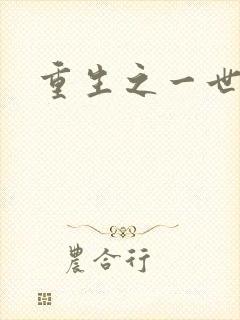 重生之一世
農合行